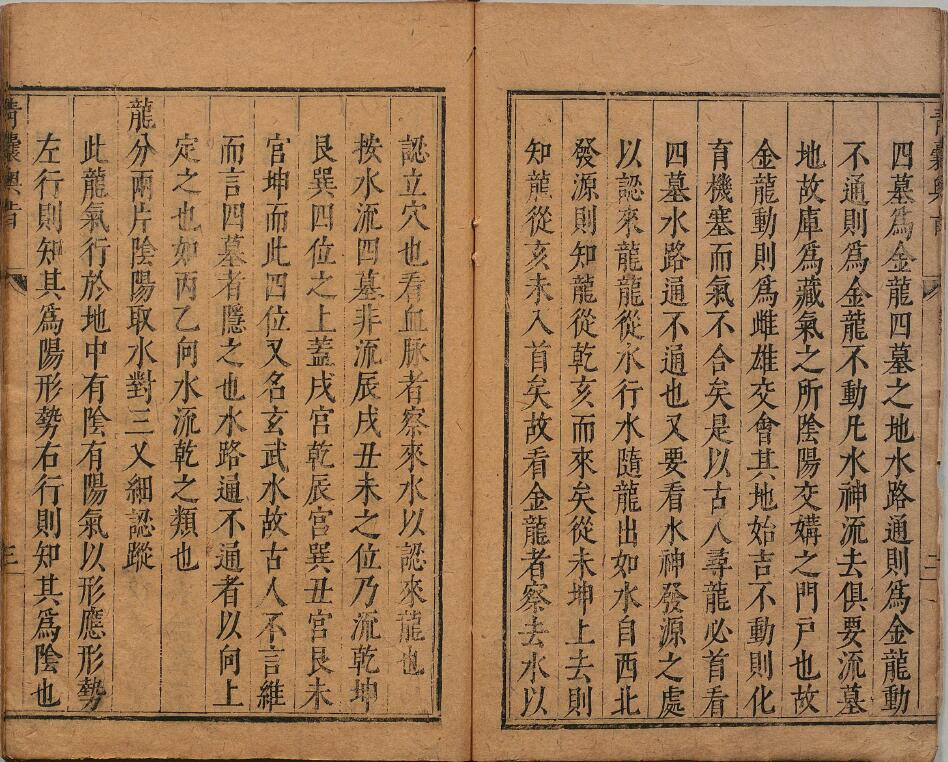 四墓爲金龍四墓之地水路通則爲金龍動
不通則爲金龍不動凡水神流去俱要流墓
地故庫爲藏氣之所陰陽交媾之門戸也故
金龍動則爲雌雄交會其地始吉不動則化
育機塞而氣不合矣是以古人尋龍必首看
四墓水路通不通也又要看水神發源之處
以認來龍龍從水行水隨龍出如水自西北
發源則知龍從乾亥而來矣從未坤上去則
知龍從亥未入首矣故看金龍者察去水以
認立穴也看血脉者察來水以認來龍也
按水流四墓非流辰戌丑未之位乃流乾坤
艮巽四位之上蓋戌宮乾辰宮巽丑宮艮未
宮坤而此四位又名玄武水故古人不言維
而言四墓者隱之也水路通不通者以向上
定之也如丙乙向水流乾之類也
龍分兩片陰陽取水對三叉細認蹤
此龍氣行於地中有陰有陽氣以形應形勢
左行則知其爲陽形勢右行則知其爲陰也
三